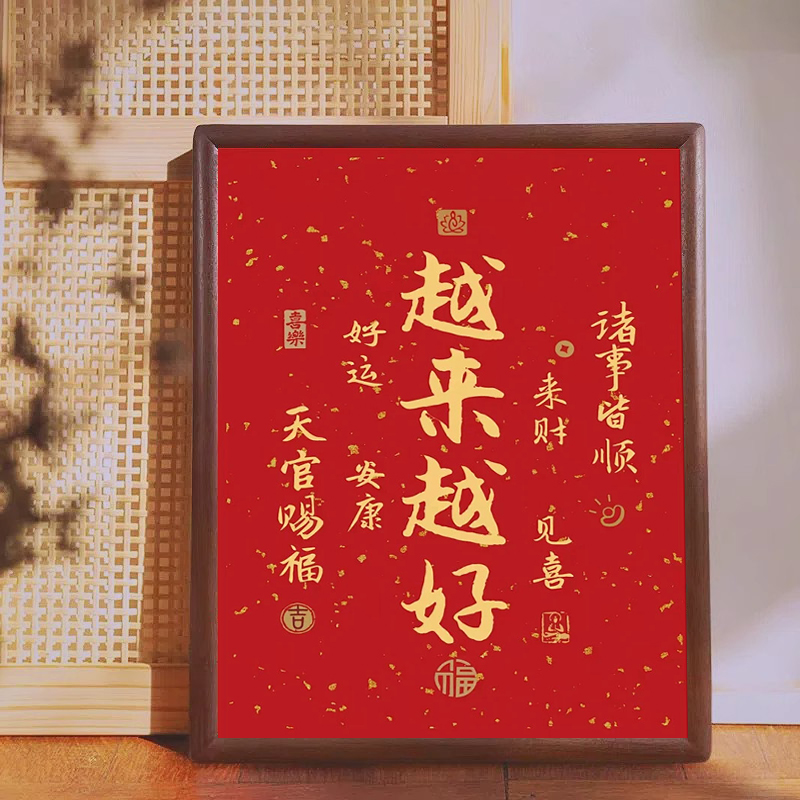 诸事皆顺
来财
见喜
越来越好
福
好运
安康
喜樂
天官赐福
吉